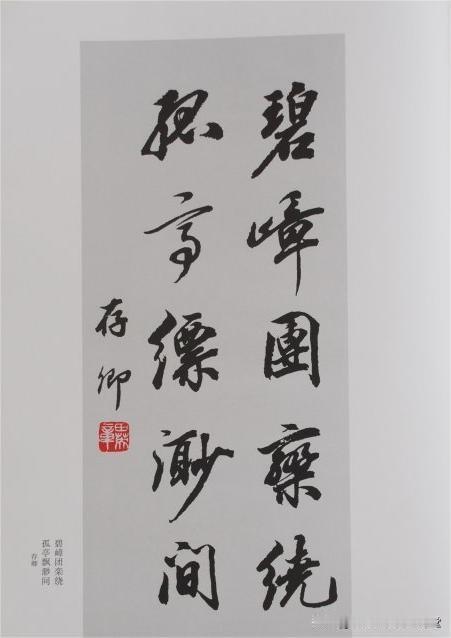 碧嶂團欒繞
孤亭縹渺间
存卿
碧嶂团栾绕
孤亭飘渺间
存卿